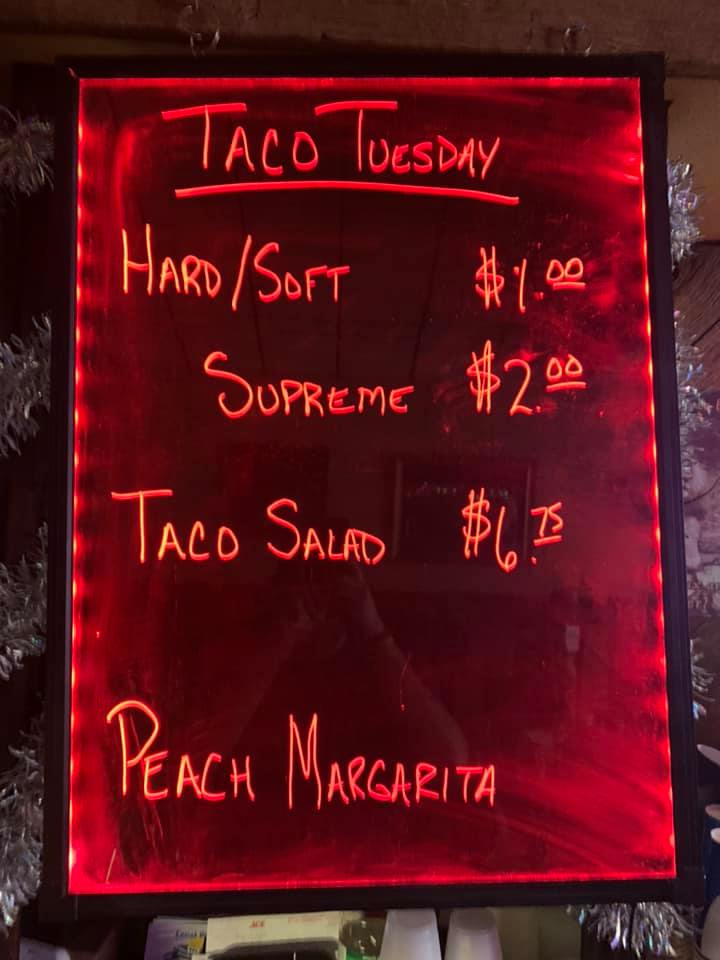 TACO TUESDAY
HARD/SOFT $1.00
SUPREME $2.00
TACO SALAD $6.75
PEACH MARGARITA
ACE